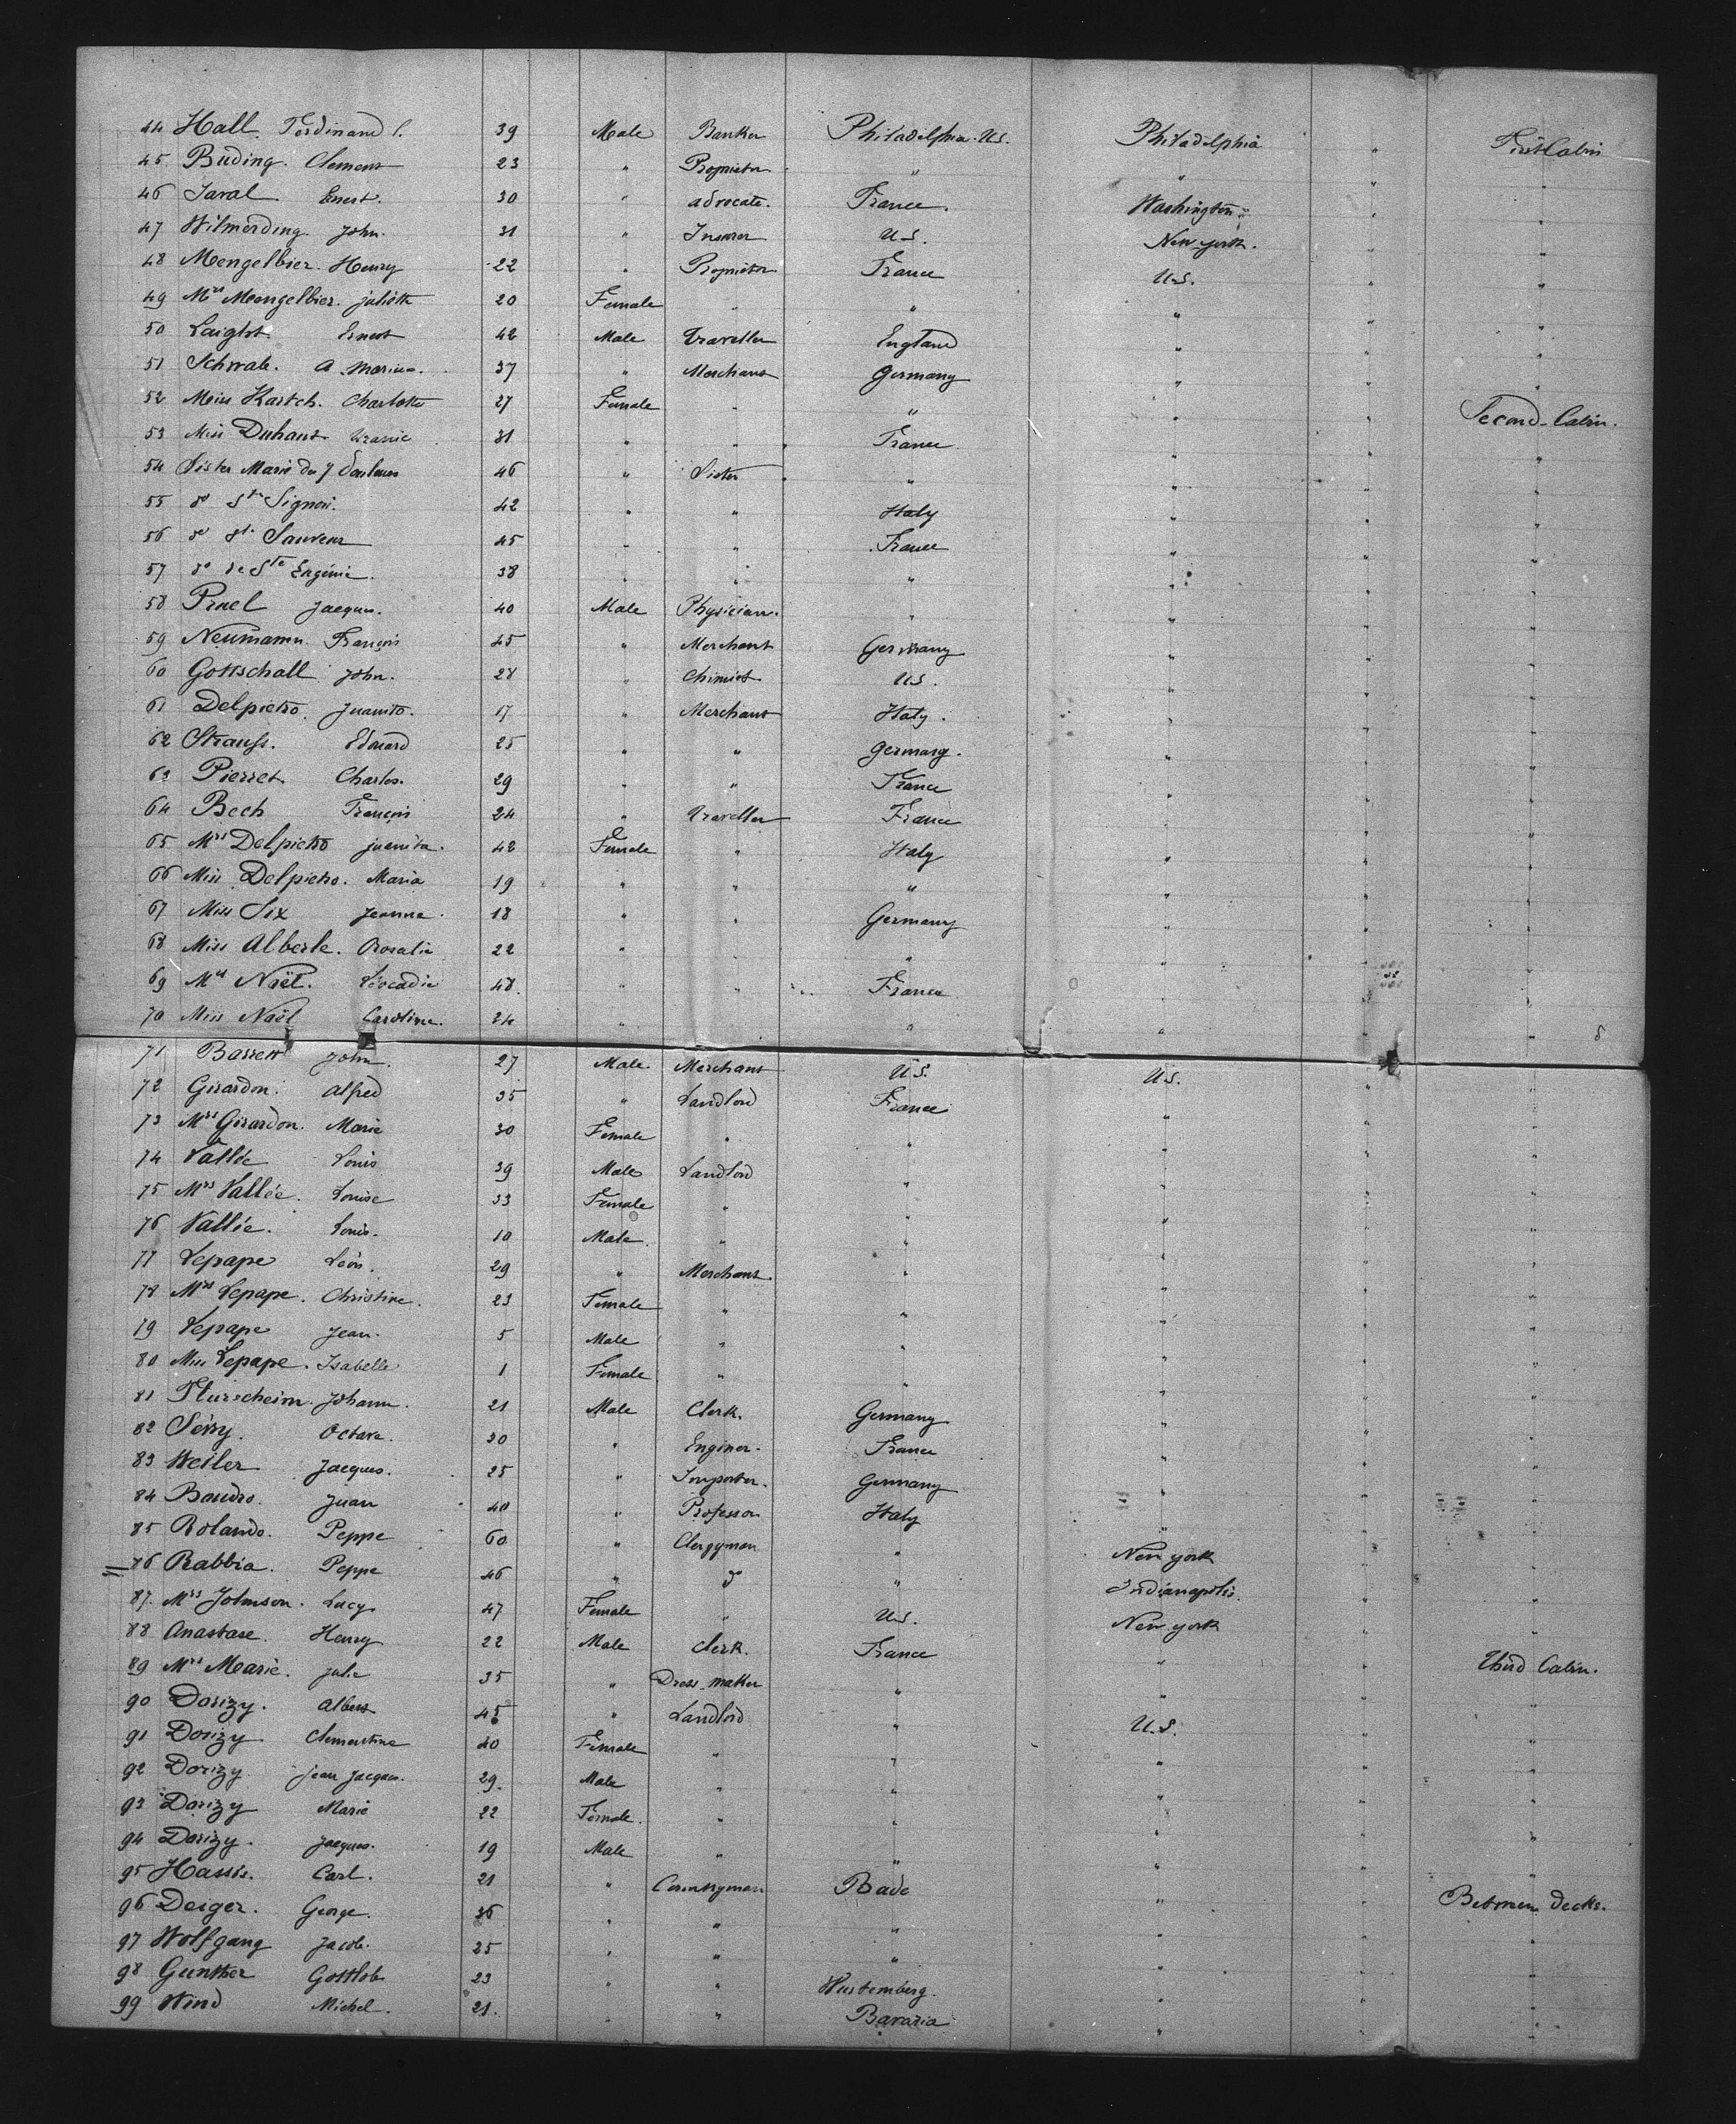 44 Hall. Ferdinand C. 39 Male Banker Philadelphia. U.S. Philadelphia " First Cabin
45 Buding. Clement 23 " Proprietor " " " "
46 Javal Ernest. 30 " advocate. France. Washington " "
47 Wilmerding. John. 31 " Insurer U.S. New york. " "
48 Mengelbier. Henry 22 " Proprietor France U.S. " "
49 Mrs Mengelbier. juliette 20 Female " " " " "
50 Laiglot. Ernest 42 Male traveller England " " "
51 Schwab. A. 37 " Merchant Germany " " "
52 Miss Kartch. Charlotte 27 Female " " " " Second Cabin.
53 Miss Duhant Uranie 31 " " France " " "
54 Sister Marie du 7 Douleurs 46 " Sister " " " "
55 do St Signori. 42 " " Italy " " "
56 do St. Sauveur 45 " " France " " "
57 do de Ste Eugénie. 38 " " " " " "
58 Pruel Jacques. 40 Male Physician. " " " "
59 Neumann. François 45 " Merchant Germany " " "
60 Gottschall John. 28 " Chimist U.S. " " "
61 Delpietro. Juanito. 17 " Merchant Italy. " " "
62 Strauss. Edouard 25 " " Germany. " " "
63 Pierret. Charles. 29 " " France " " "
64 Bech François 24 " traveller France " " "
65 Mrs Delpietro juanita. 42 Female " Italy " " "
66 Miss Delpietro. Maria 19 " " " " " "
67 Miss Six Jeanne. 18 " " Germany " " "
68 Miss Alberle. Rosalie 22 " " " " " "
69 Mrs Naël. Léocadie 48. " " France " " "
70 Miss Naël Caroline. 24 " " " " " " 8
71 Barrett John. 27 Male Merchant U.S. U.S. " "
72 Girardon. Alfred 35 " Landlord France " " "
73 Mrs Girardon. Marie 30 Female " " " " "
74 Vallée Louis 39 Male Landlord " " " "
75 Mrs Vallée. Louise 33 Female " " " " "
76 Vallée. Louis. 10 Male. " " " " "
77 Lepape Léon. 29 " Merchant. " " " "
78 Mrs Lepape. Christine. 23 Female " " " " "
79 Lepape Jean. 5 Male " " " " "
80 Miss Lepape. Isabelle 1 Female " " " " "
81 Flurscheim. Johann. 21 Male Clerk. Germany " " "
82 Octave. 30 " Enginer. France " " "
83 Weiler Jacques. 25 " Importer. Germany " " "
84 Juan 40 " Professor Italy " " "
85 Rolando. Peppe 60 " Clergyman " New york " "
86 Rabbia. Peppe 46 " do " Indianapolis. " "
87. Mrs Johnson. Lucy 47 Female " U.S. New york " "
88 Anastase. Henry 22 Male Clerk. France " " Third Cabin.
89 Mrs Marie. Julie 35 " Dress-matker " " " "
90 Dorizy. Albert 45 " Landlord " U.S. " "
91 Dorizy Clementine 40 Female " " " " "
92 Dorizy Jean Jacques. 29. Male " " " " "
93 Dorizy Marie 22 Female. " " " " "
94 Dorizy. Jacques. 19 Male " " " " "
95 Hassis. Carl. 21 " Countryman Bade " " Between decks.
96 Deiger. George. 36 " " " " " "
97 Wolfgang Jacob. 25 " " " " " "
98 Gunther Gottlob 23 " " Wurtemberg. " " "
99 Wind Michel. 21. " " Bavaria " " "